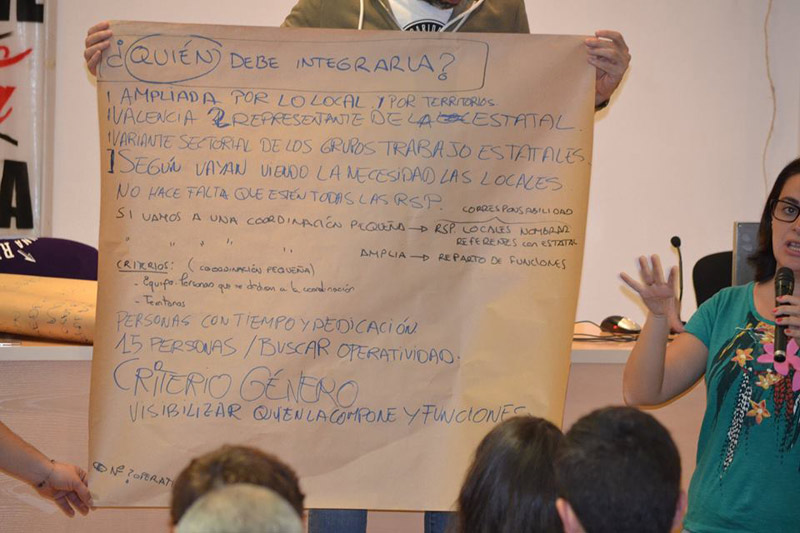 ¿QUIÉN DEBE INTEGRARLA?
AMPLIADA POR LO LOCAL Y POR TERRITORIOS
VALENCIA 2 REPRESENTANTE DE LA ESTATAL.
VARIANTE SECTORIAL DE LOS GRUPOS TRABAJO ESTATALES.
SEGÚN VAYAN VIENDO LA NECESIDAD LAS LOCALES
NO HACE FALTA QUE ESTÉN TODAS LAS RSP.
CORRESPONSABILIDAD
SI VAMOS A UNA COORDINACIÓN PEQUEÑA → RSP LOCALES NOMBRAR
REFERENTES CON ESTATAL
" " " " AMPLIA → REPARTO DE FUNCIONES
CRITERIOS: (COORDINACIÓN PEQUEÑA)
- Equipo. Personas que se dedican a la coordinación
- Territorios
PERSONAS CON TIEMPO Y DEDICACIÓN
15 PERSONAS / BUSCAR OPERATIVIDAD.
CRITERIO GÉNERO
VISIBILIZAR QUIEN LA COMPONE Y FUNCIONES
Nº ? OPERATI